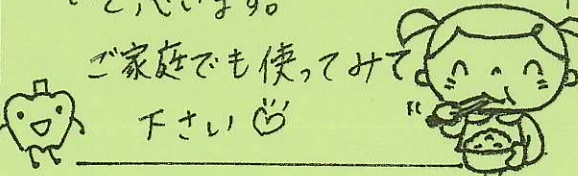 と思います。
ご家庭でも使ってみて
下さい